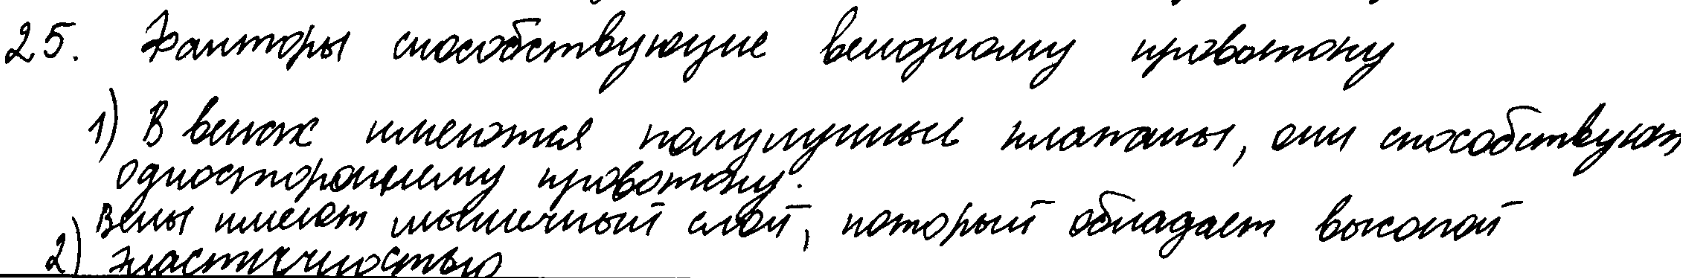 25. Факторы способствующие венозному кровотоку
1) В венах имеются полулунные клапаны, они способствуют
одностороннему кровотоку.
Вены имеют мышечный слой, который обладает высокой
2) эластичностью